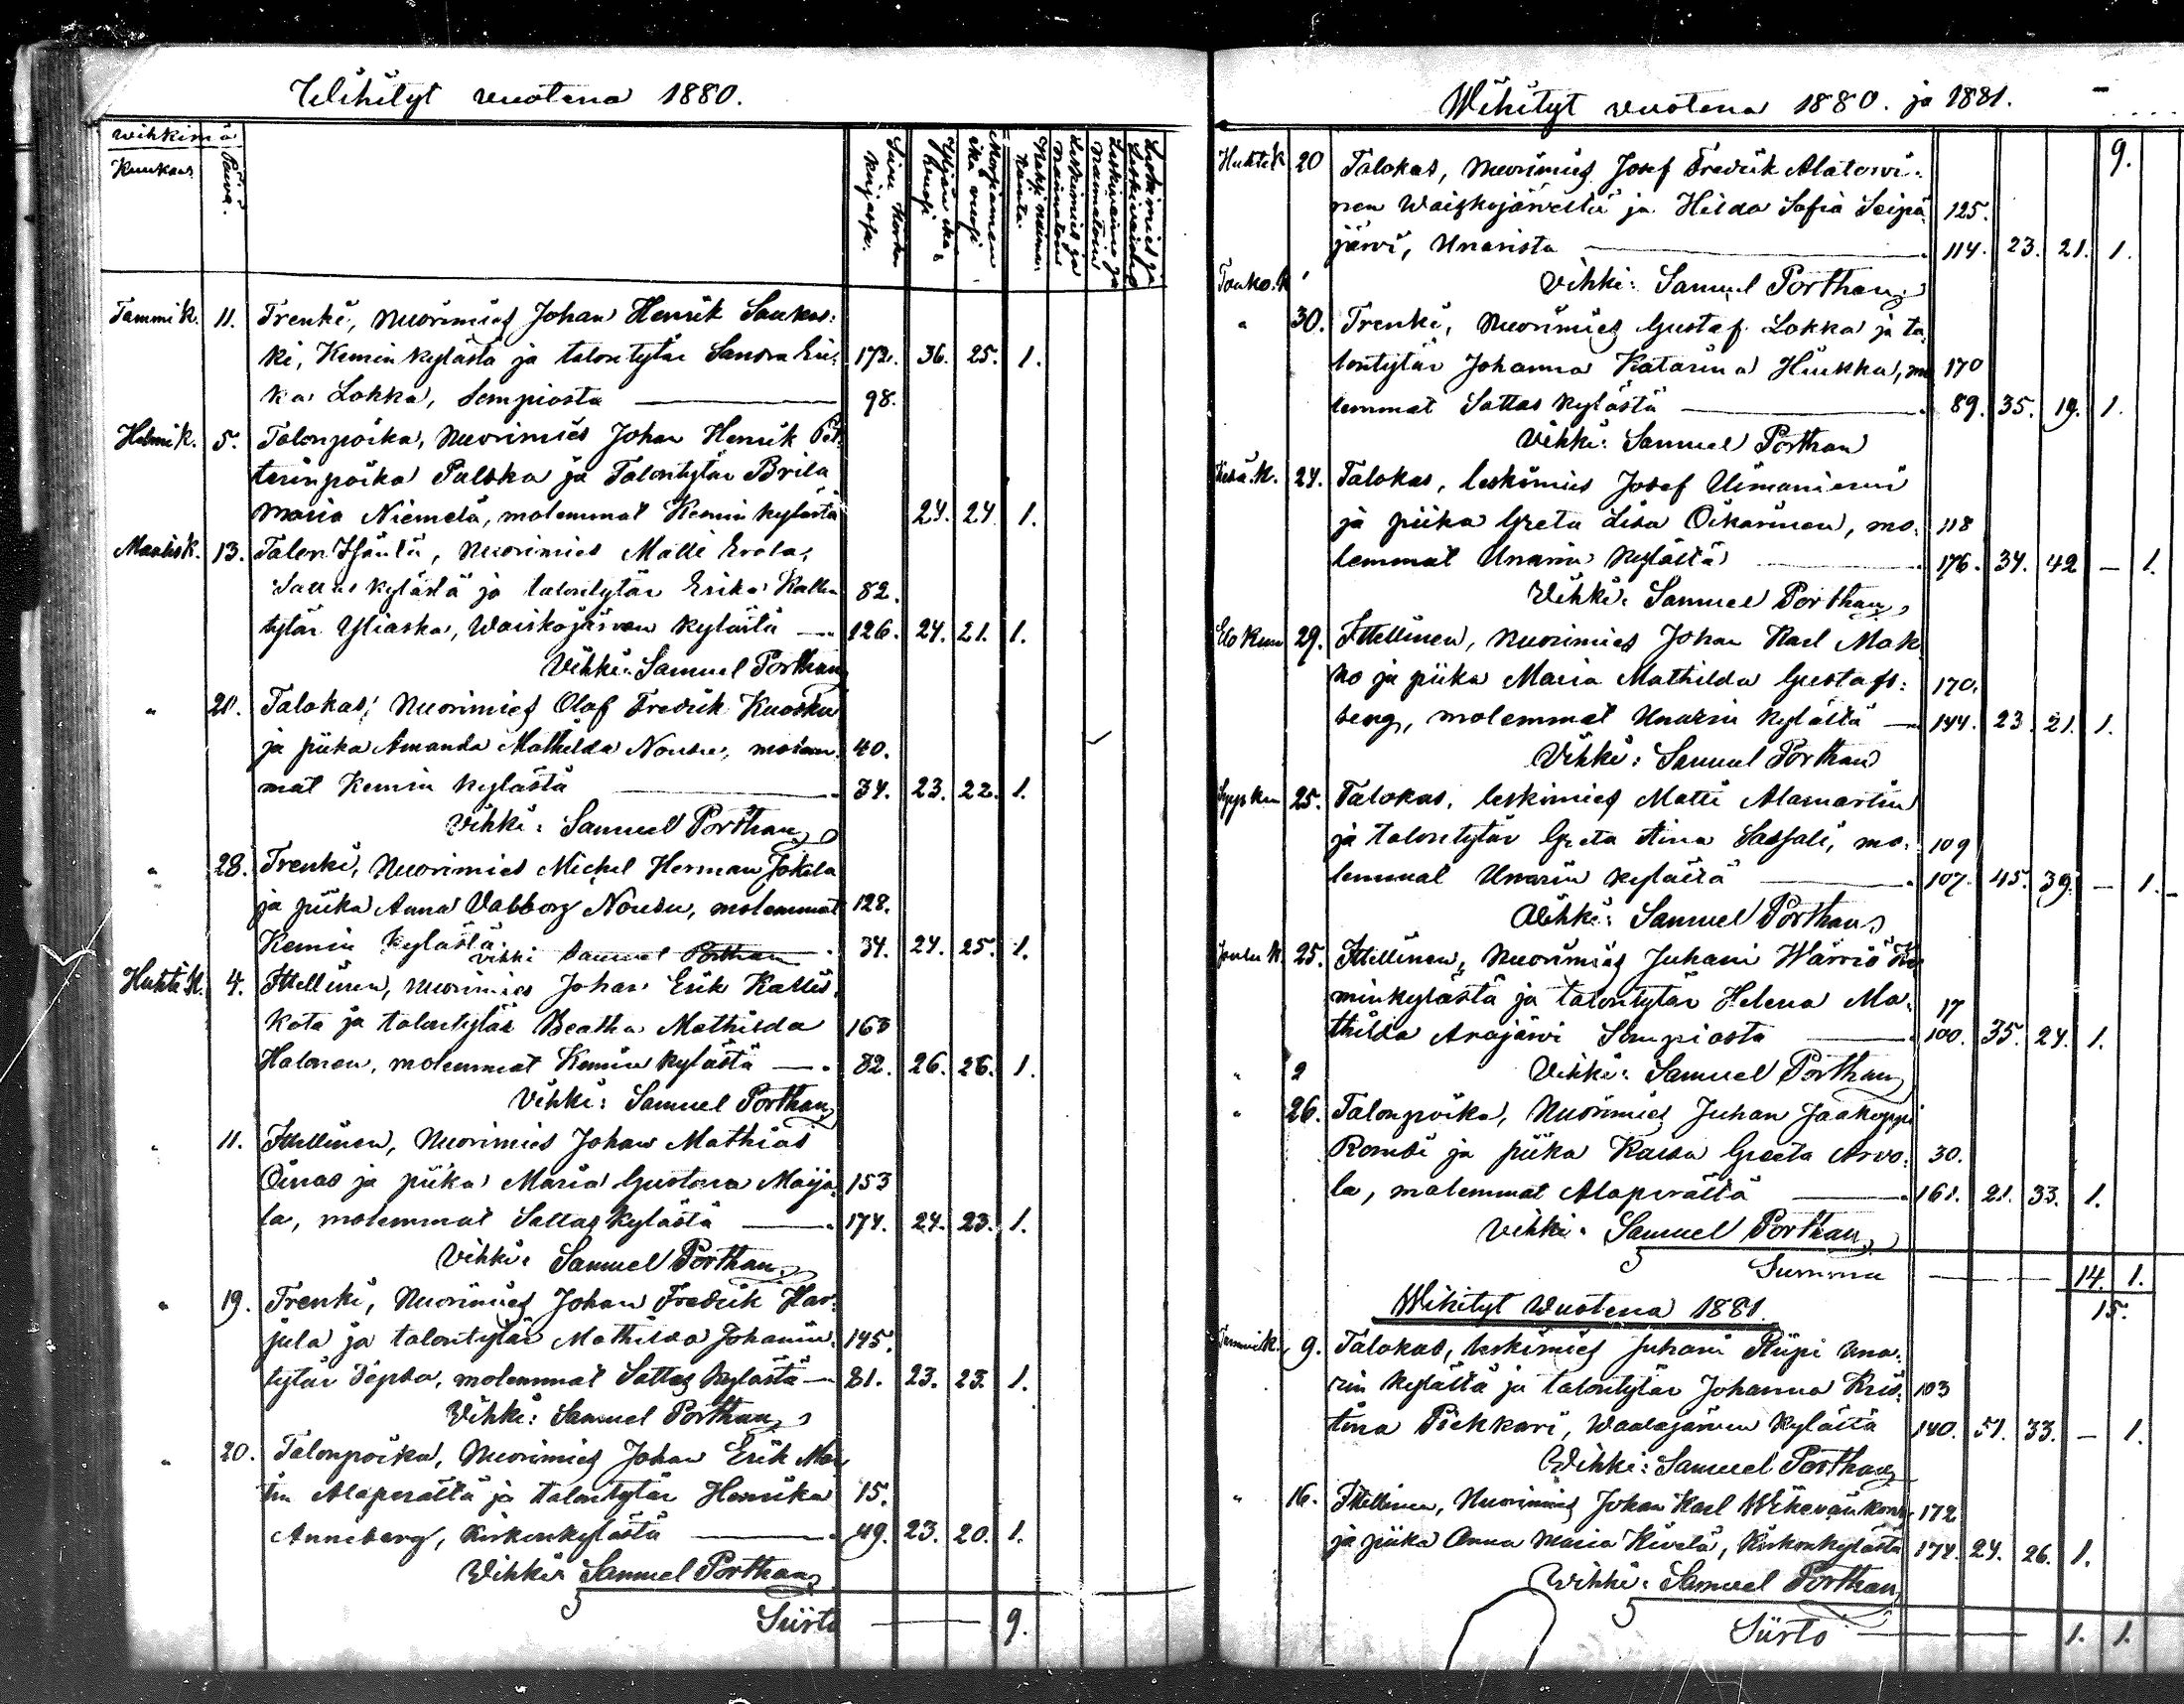 Wihityt vuotena 1880.
wihkimä
Kuukausi Päivä. Sivu kirkon kirjassa. Yljän ikä, vuosi Morsiamen ikä vuosi Leskimies ja naimaton Leskivaimo ja naimaton Leskimies ja Leskivaimo
Tammi k. 11. Trenki, nuorimies Johan Henrik Saukos:
ki, Kemin kylästä ja talontytär Sandra Eri: 172. 36. 25. 1.
ka Lokka, Sompiosta 98.
Helmi k. 5. Talonpoika, nuorimies Johan Henrik Pet:
terinpoika Pulska ja Talontytär Brita
Maria Niemelä, molemmat Kemin kylästä 24. 24. 1.
Maalis k. 13. Talon Isäntä, nuorimies Matti Erola,
Sattas kylästä ja talontytär Erika Kallen 82.
tytär Yliaska, Waiskojärven kylästä 126. 24. 21. 1.
Vihki: Samuel Porthan
" 21. Talokas, nuorimies Olof Fredrik Kuosku
ja piika Amanda Mathilda Nousu, molem: 40.
mat Kemin kylästä 34. 23. 22. 1.
Vihki: Samuel Porthan
" 28. Trenki, nuorimies Michel Herman Jokela
ja piika Anna Valborg Nousu, molemmat 128.
Kemin kylästä. Vihki Samuel Porthan 34. 24. 25. 1.
Huhti k. 4. Ittellinen, nuorimies Johan Erik Kallis:
kota ja talontytär Beatha Mathilda 163
Halonen, molemmat Kemin kylästä 82. 26. 26. 1.
Vihki: Samuel Porthan
" 11. Ittellinen, nuorimies Johan Mathias
Oinas ja piika Maria Gustava Maija: 153
la, molemmat Sattas kylästä 174. 24. 23. 1.
Vihki: Samuel Porthan
" 19. Trenki, nuorimies Johan Fredrik Har:
jula ja talontytär Mathilda Johanin: 145.
tytär Seppä, molemmat Sattas kylästä 81. 23. 23. 1.
Vihki: Samuel Porthan
" 20. Talonpoika, nuorimies Johan Erik Mar
tin Alaperältä ja talontytär Henrika 15.
Anneberg, Kirkonkylästä 49. 23. 20. 1.
Wihki: Samuel Porthan
Siirto 9.
Wihityt vuotena 1880. ja 1881.
9.
Huhti k 20 Talokas, nuorimies Josef Fredrik Alatorvi:
nen Waiskojärveltä ja Hilda Sofia Seipä: 125.
järvi, Unarista 114. 23. 21. 1.
Touko. k Vihki: Samuel Porthan
" 30. Trenki, nuorimies Gustaf Lokka ja ta:
lontytär Johanna Katarina Hiukka, mo 170
lemmat Sattas kylästä 89. 35. 19. 1.
Vihki: Samuel Porthan
Kesä. k. 24. Talokas, leskimies Josef Uimaniemi
ja piika Greta Lisa Oikarinen, mo: 118
lemmat Unarin kylästä 176. 34. 42 — 1.
Vihki: Samuel Porthan
Elo kuu 29. Ittellinen, nuorimies Johan Karl Mok
ko ja piika Maria Mathilda Gustafs: 170.
berg, molemmat Unarin kylästä 144. 23. 21. 1.
Vihki: Samuel Porthan
Syys kuu 25. Talokas, leskimies Matti Alamartin
ja talontytär Greta Stina Sassali, mo: 109
lemmat Unarin kylästä 107. 45. 39. — 1.
Vihki: Samuel Porthan
Joulu k. 25. Ittellinen, nuorimies Juhani Wärriö Ke
minkylästä ja talontytär Helena Ma: 17
thilda Arajärvi Sompiosta 100. 35. 24. 1.
" 2 Vihki: Samuel Porthan
" 26. Talonpoika, nuorimies Juhan Jaakoppi
Rombi ja piika Kaisa Greeta Arvo: 30.
la, molemmat Alaperältä 161. 21. 33. 1.
Vihki: Samuel Porthan
Summa 14. 1.
15.
Wihityt Vuotena 1881.
Tammi k. 9. Talokas, leskimies Juhani Riipi Una:
rin kylästä ja talontytär Johanna Kris: 103
tiina Piekkari, Waalajärven kylästä 140. 51. 33. — 1.
Wihki: Samuel Porthan
" 16. Ittellinen, nuorimies Johan Karl Wiheriäinkoski 172
ja piika Anna Maria Kivelä, Kirkonkylästä 174. 24. 26. 1.
Wihki: Samuel Porthan
Siirto 1. 1.